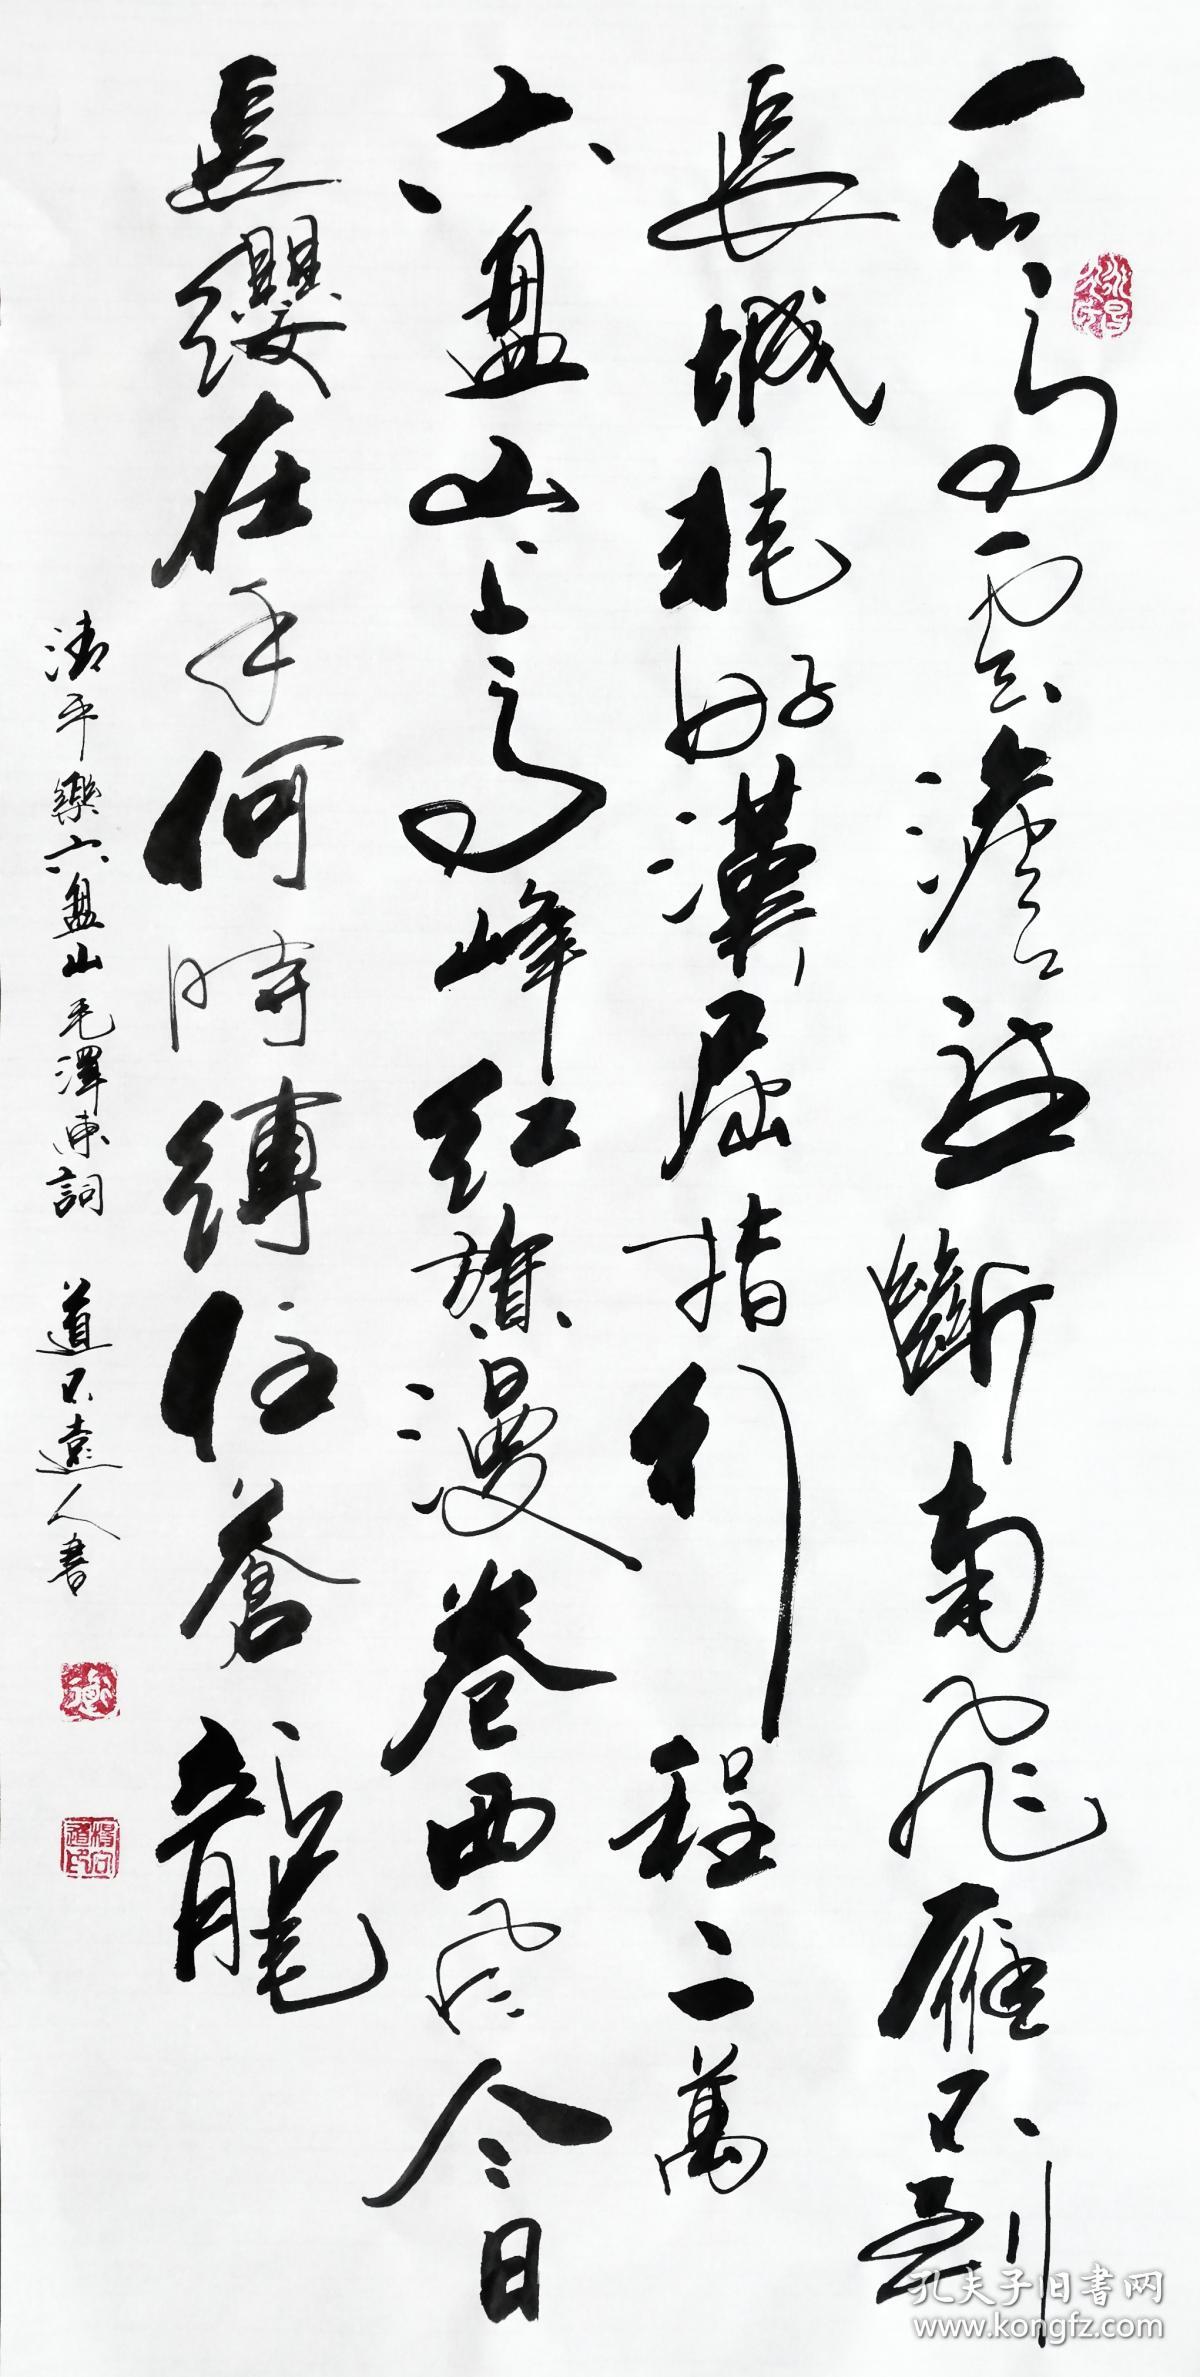 天高雲澹望斷南飛雁不到
長城非好漢屈指行程二萬
六盘山上高峰紅旗漫卷西風今日
長纓在手何時縛住蒼龍
清平樂六盘山毛澤東詞 道不遠人書
孔夫子旧书网
www.kongfz.com